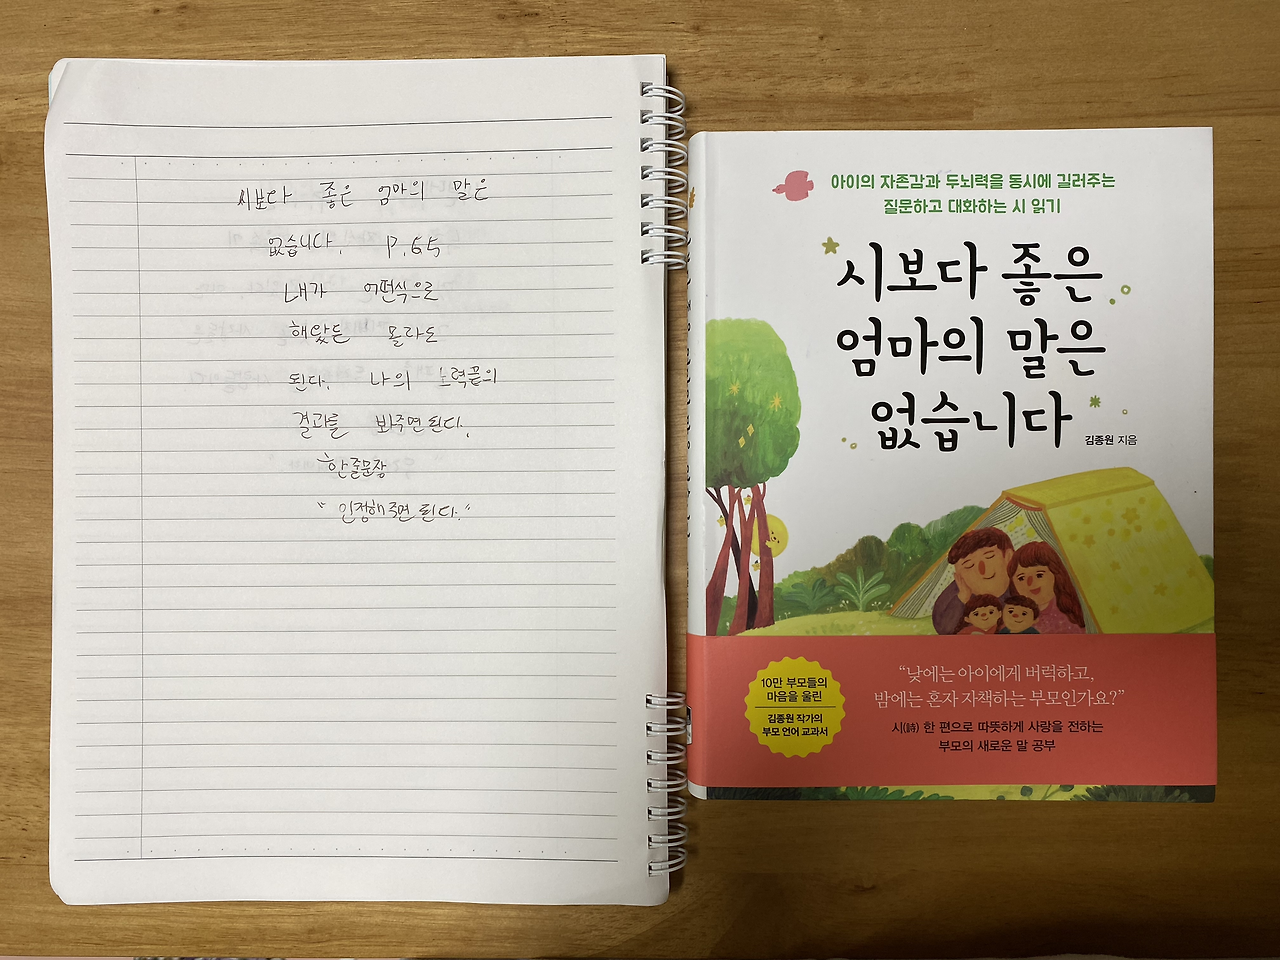 시보다 좋은 엄마의 말은
없습니다. P.65
내가 어떤식으로
해왔든 몰라도
된다. 나의 노력끝의
결과를 봐주면 된다.
한줄문장
"인정해주면 된다."
아이의 자존감과 두뇌력을 동시에 길러주는
질문하고 대화하는 시 읽기
시보다 좋은
엄마의 말은
없습니다
김종원 지음
10만 부모들의
마음을 울린
김종원 작가의
부모 언어 교과서
“낮에는 아이에게 버럭하고,
밤에는 혼자 자책하는 부모인가요?”
시(詩) 한 편으로 따뜻하게 사랑을 전하는
부모의 새로운 말 공부